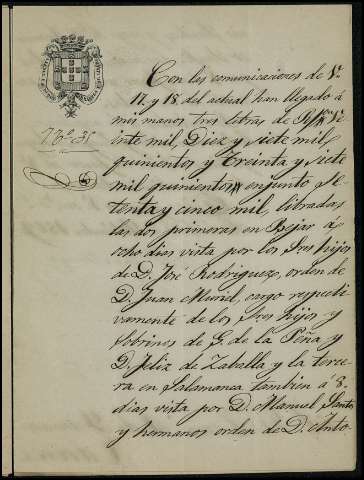 Con las comunicaciones de V.
17 y 18 del actual han llegado á
mis manos tres letras de
inte mil, Diez y siete mil
quinientos y Treinta y siete
mil quinientos en junto Se
tenta y cinco mil, libradas
las dos primeras en Bejar á
ocho dias vista por los Sres hijos
de D. José Rodriguez, orden de
D. Juan Muriel, cargo respecti
vamente de los Sres hijos y
Sobrinos de G. de la Peña y
D. Feliz de Zaballa y la terce
ra en Salamanca tambien á 8
dias vista por D. Manuel Santos
y hermanos orden de D. Anto-